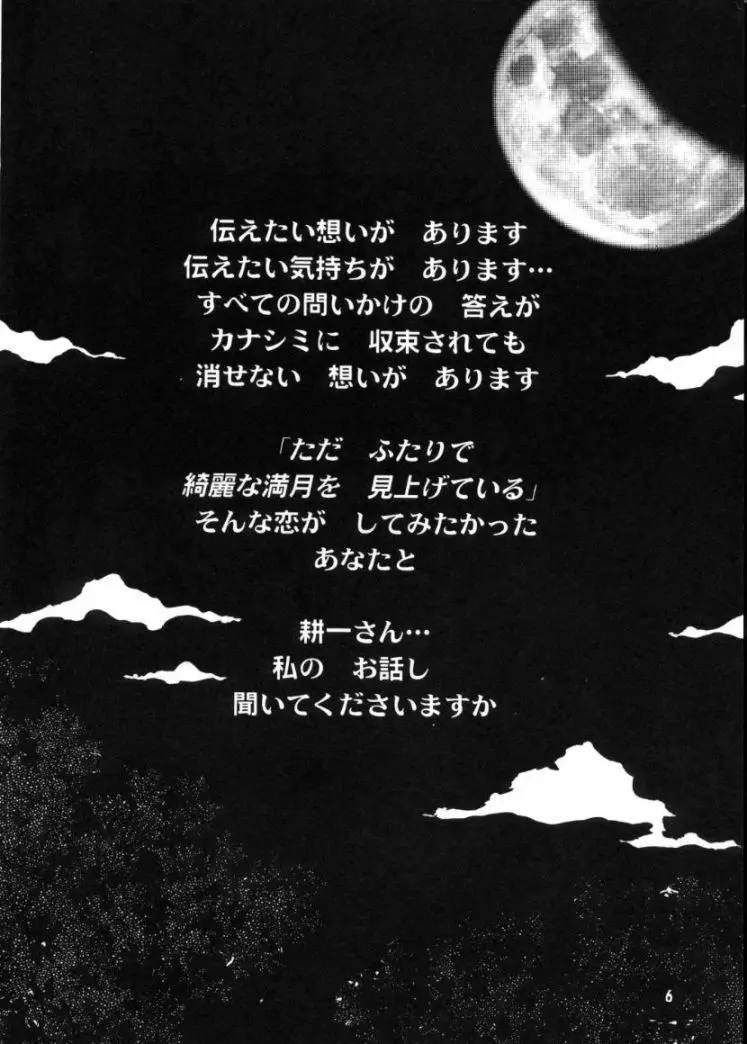 伝えたい想いが　あります
伝えたい気持ちが　あります…
すべての問いかけの　答えが
カナシミに　収束されても
消せない　想いが　あります
「ただ　ふたりで
綺麗な満月を　見上げている」
そんな恋が　してみたかった
あなたと
耕一さん…
私の　お話し
聞いてくださいますか
6